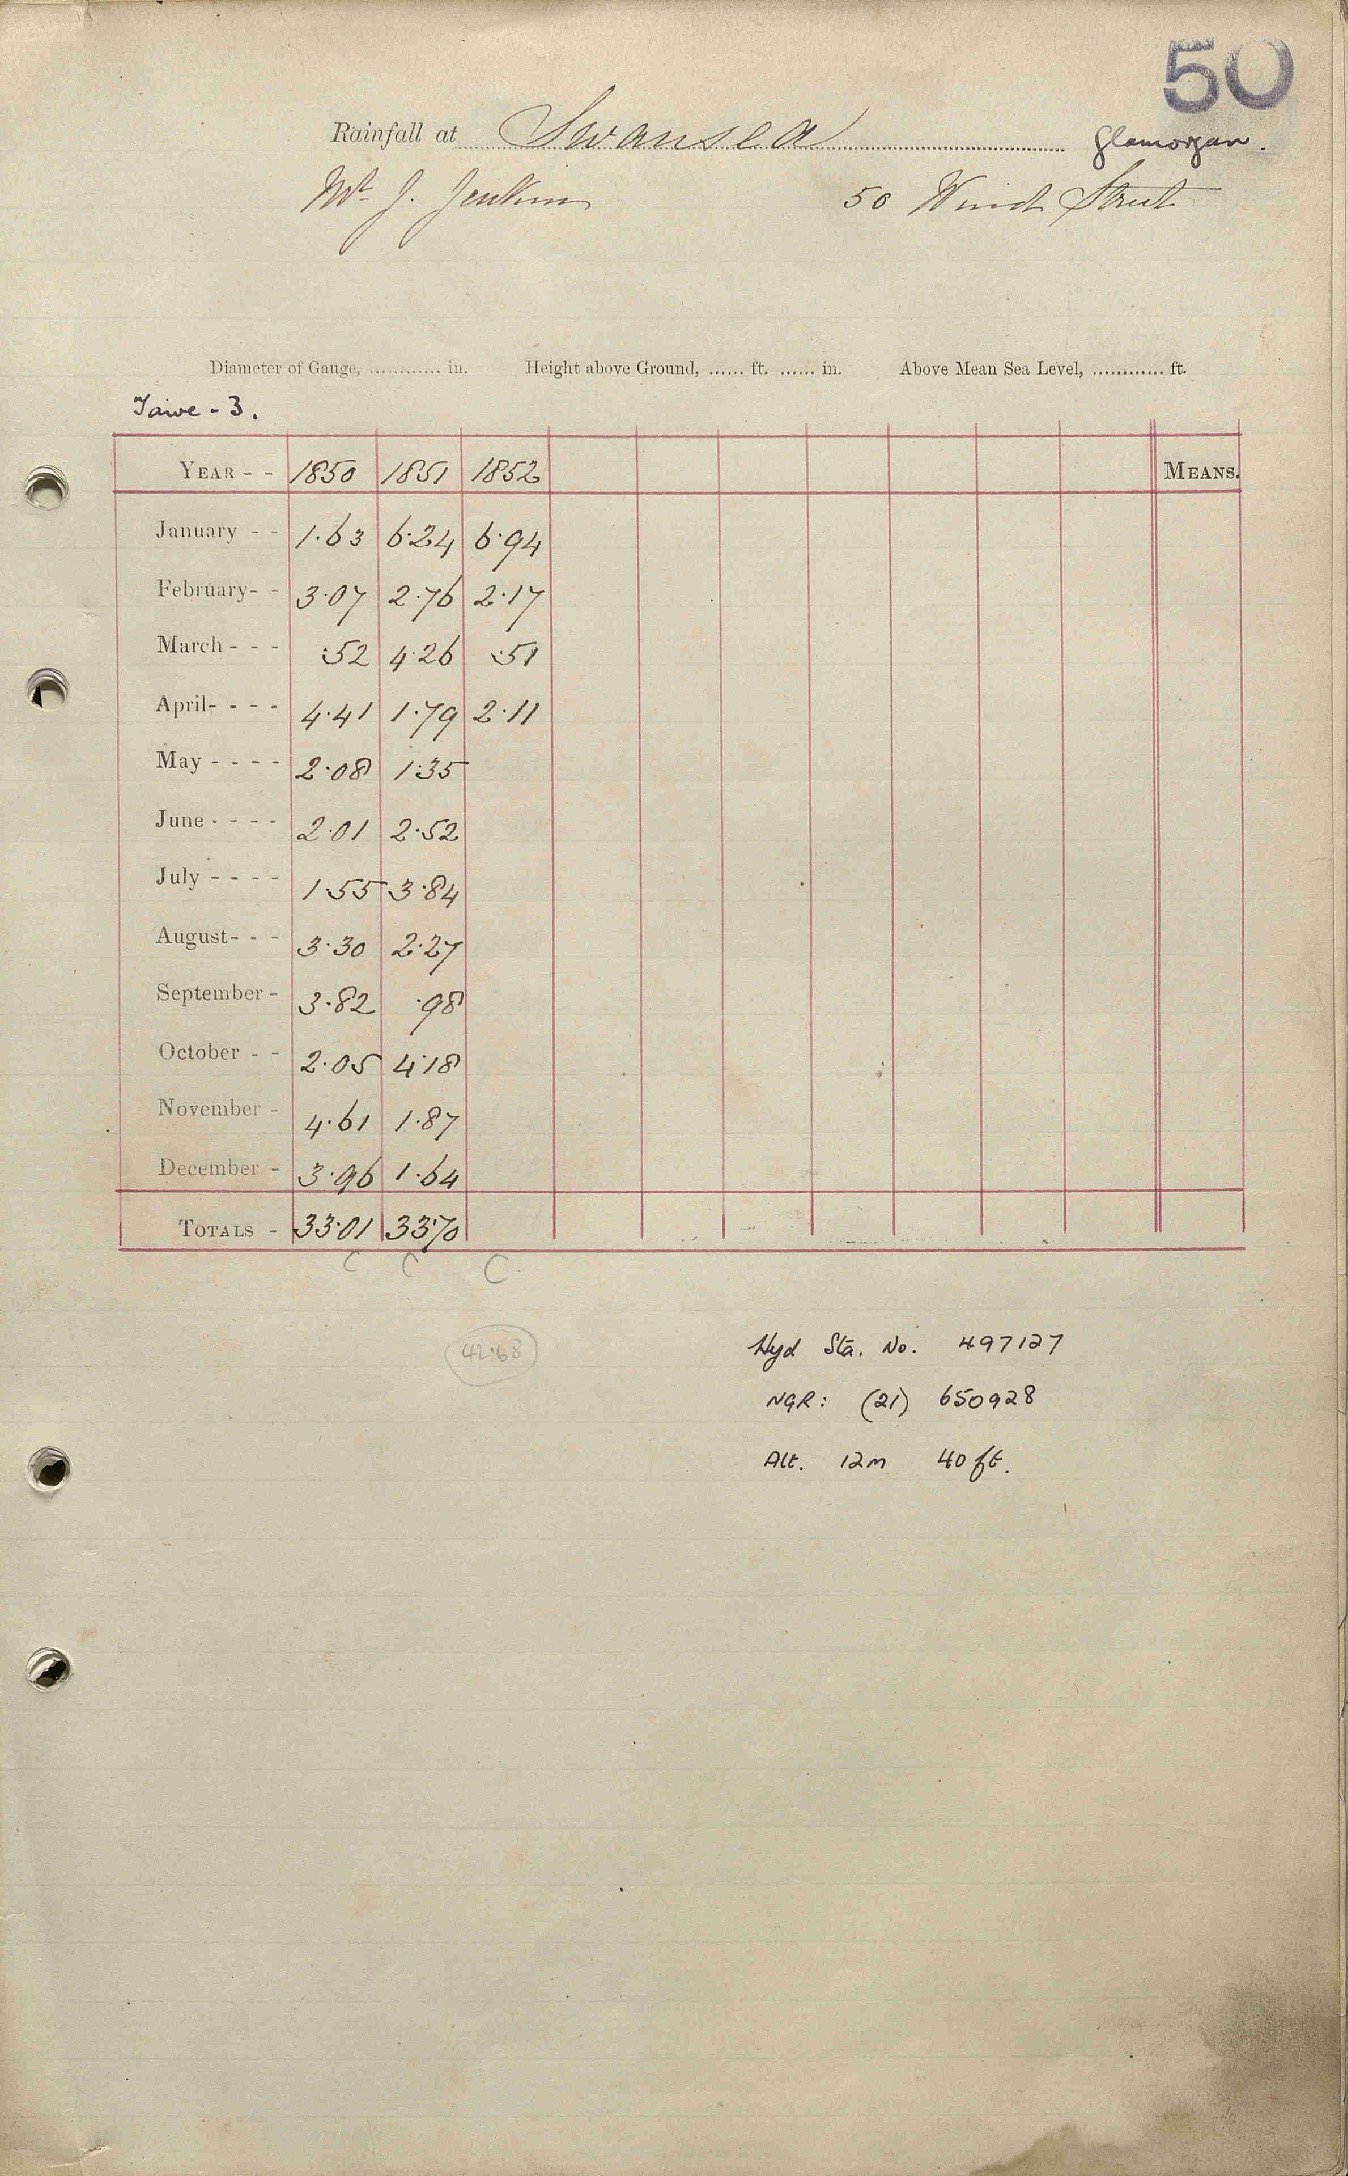 50
Rainfall at Swansea Glamorgan.
Mr. J. Jenkins 50 Wind Street
Diameter of Gauge, ............ in. Height above Ground, ...... ft. ...... in. Above Mean Sea Level, ............ ft.
Tawe - 3.
YEAR - - 1850 1851 1852 MEANS.
January - - 1.63 6.24 6.94
February - - 3.07 2.76 2.17
March - - - .52 4.26 .51
April - - - - 4.41 1.79 2.11
May - - - - 2.08 1.35
June - - - - 2.01 2.52
July - - - - 1.55 3.84
August - - - 3.30 2.27
September - 3.82 .98
October - - 2.05 4.18
November - 4.61 1.87
December - 3.96 1.64
TOTALS - 33.01 33.70
C C C
42.68
Hyd Sta. No. 497127
NGR: (21) 650928
Alt. 12m 40 ft.